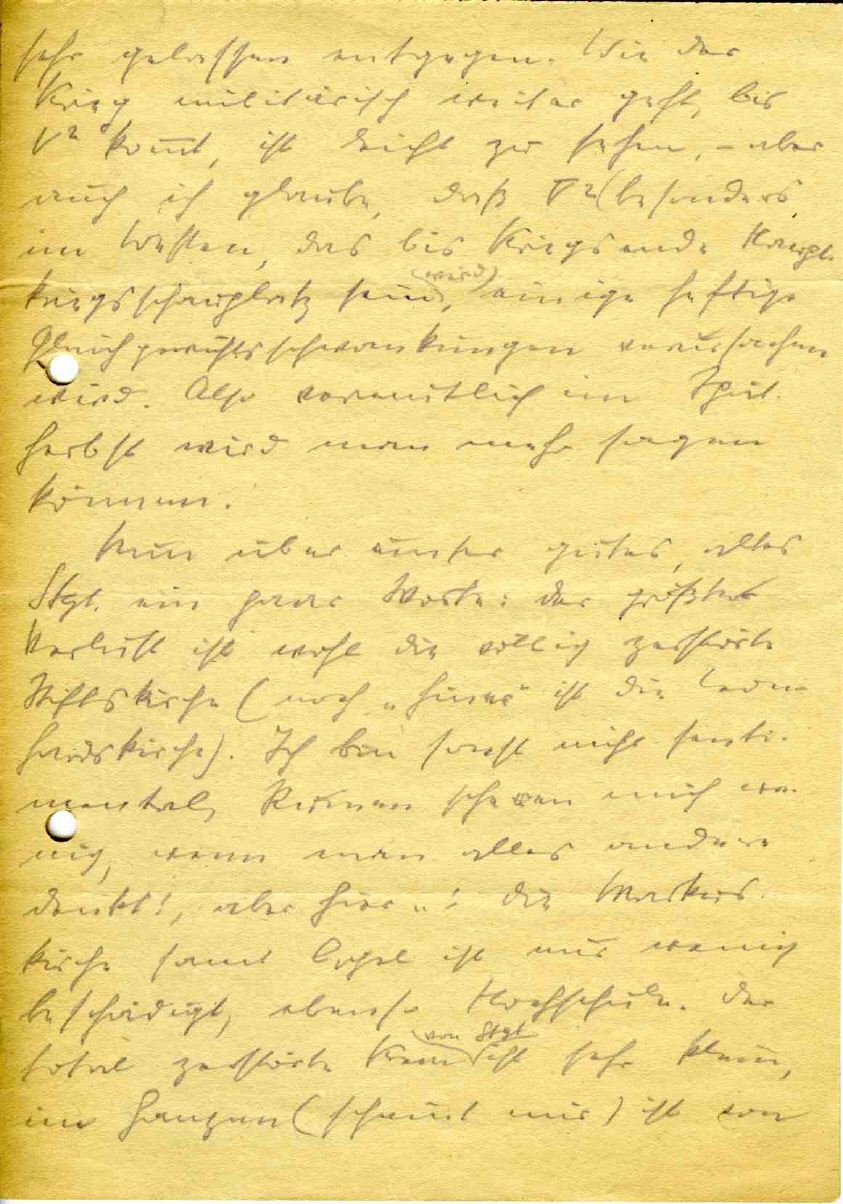 sehr gelassen entgegen. Wie der
Krieg militärisch weiter geht, bis
V² kom̅t, ist leicht zu sehen, – aber
auch ich glaube, daß V² (besonders
im Westen, das bis Kriegsende Haupt-
kriegsschauplatz sein (wird), einige heftige
Gleichgewichtsschwankungen verursachen
wird. Also vermutlich im Spät-
herbst wird man mehr sagen
können.
Nun über unser gutes, altes
Stgt. ein paar Worte: der größte
Verlust ist wohl die völlig zerstörte
Stiftskirche (noch „hin ist die Leon-
hardskirche). Ich bin sonst nicht senti-
mental, Ruinen mich we-
nig, wenn man alles andere
denkt!, aber hier –! die Markus-
kirche samt Orgel ist nur wenig
beschädigt, ebenso Hochschule. Der
total zerstörte Kern von Stgt ist sehr klein,
im Ganzen (scheint mir) ist von